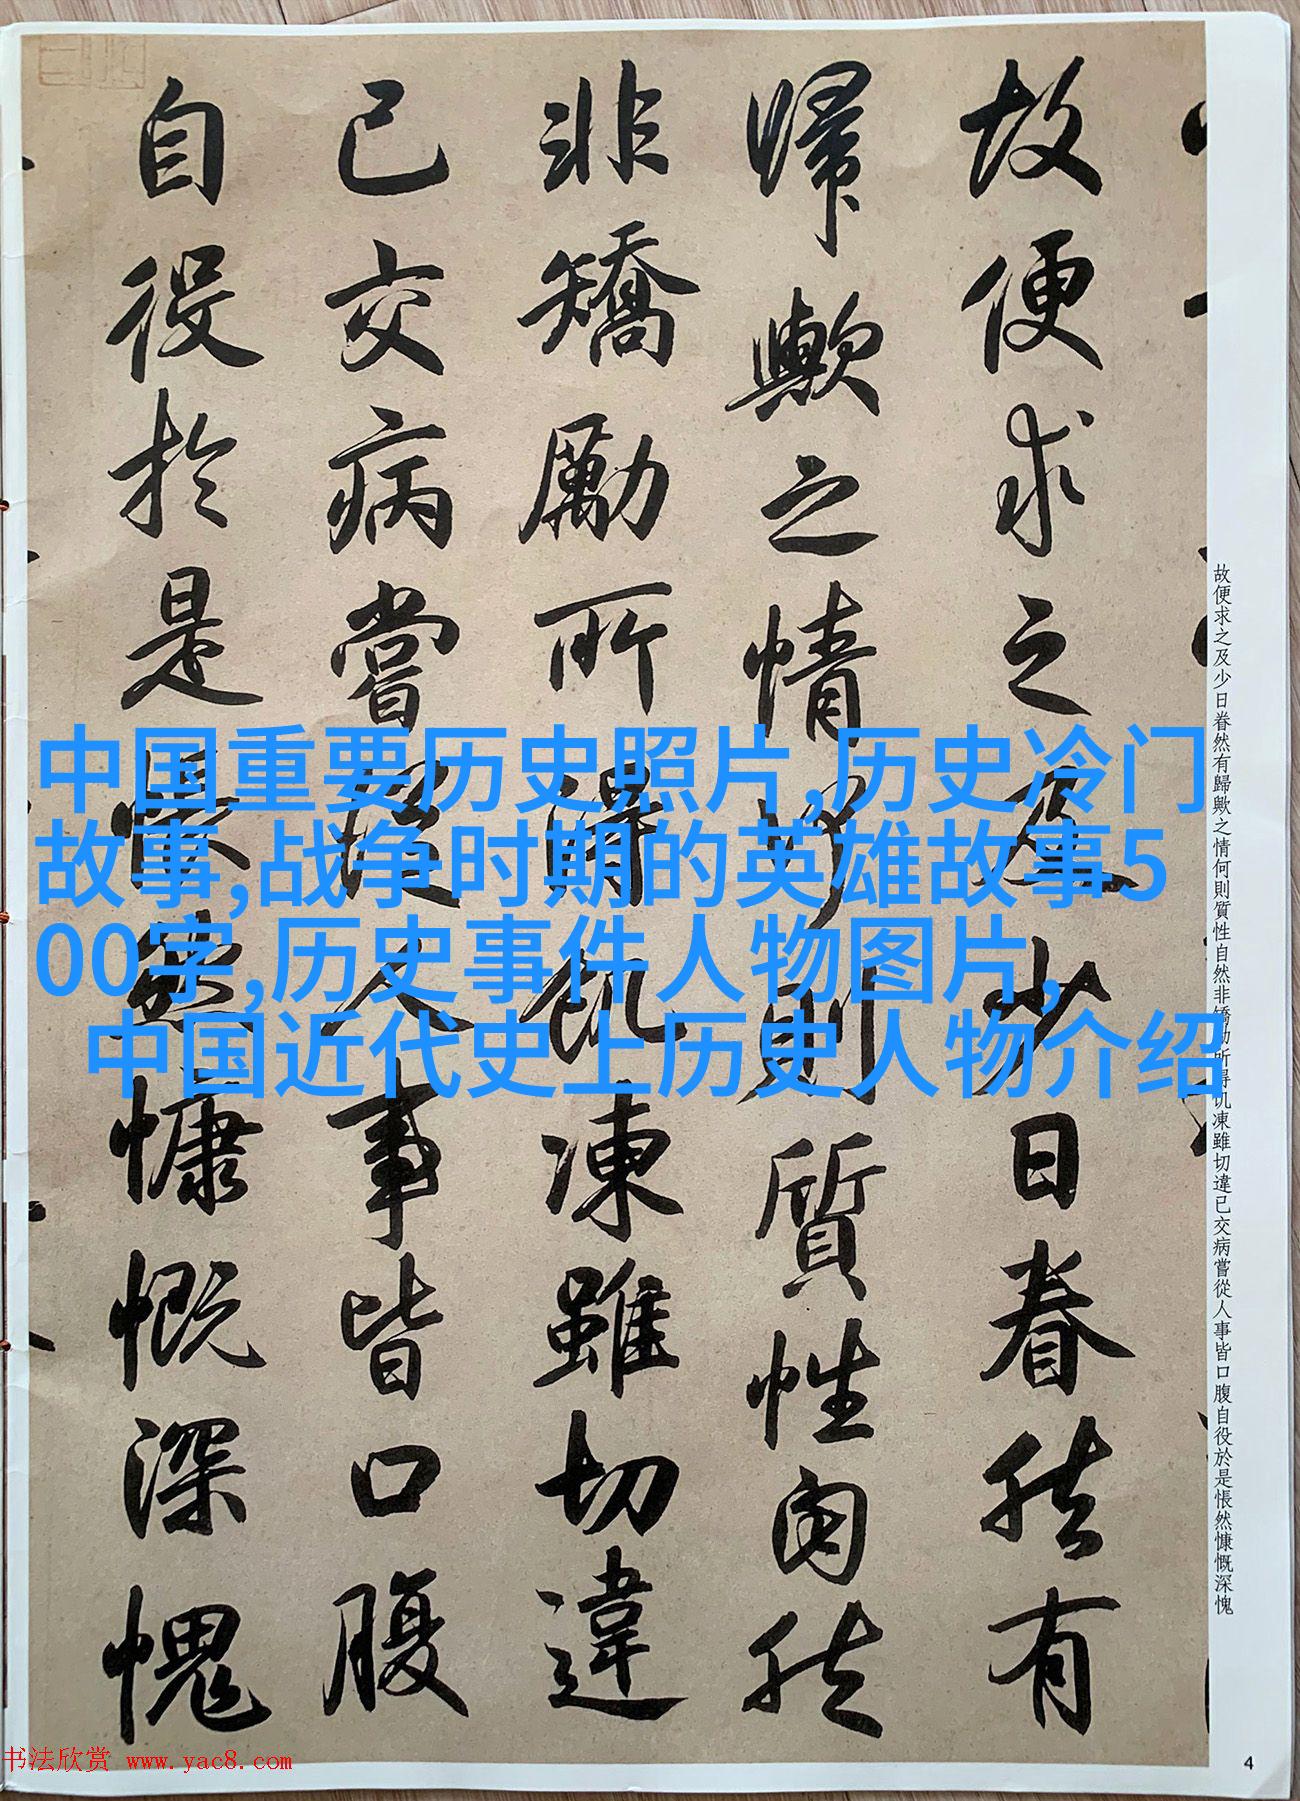 故便求之及少日眷然有
歸歟之情何則質性自然
非矯勵所得飢凍雖切違
已交病嘗從人事皆口腹
自役於是悵然慷慨深愧
故便求之及少日眷然有歸歟之情何則質性自然非矯勵所得飢凍雖切違已交病嘗從人事皆口腹自役於是悵然慷慨深愧
中国重要历史照片,历史冷门
故事,战争时期的英雄故事5
00字,历史事件人物图片,
中国近代史上历史人物介绍
书法欣赏 www.yac8.com
4